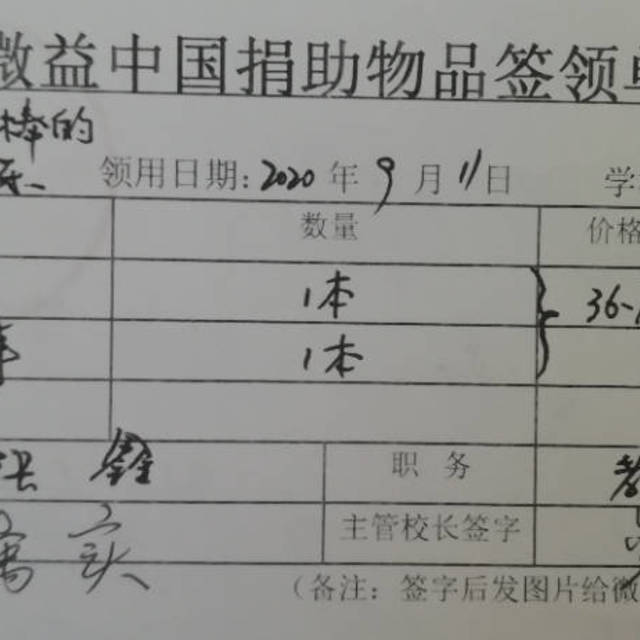 微益中国捐助物品签领单
棒的
领用日期：2020年9月11日 学
数量 价格
1本 36-
1本
职 务
主管校长签字
（备注：签字后发图片给微